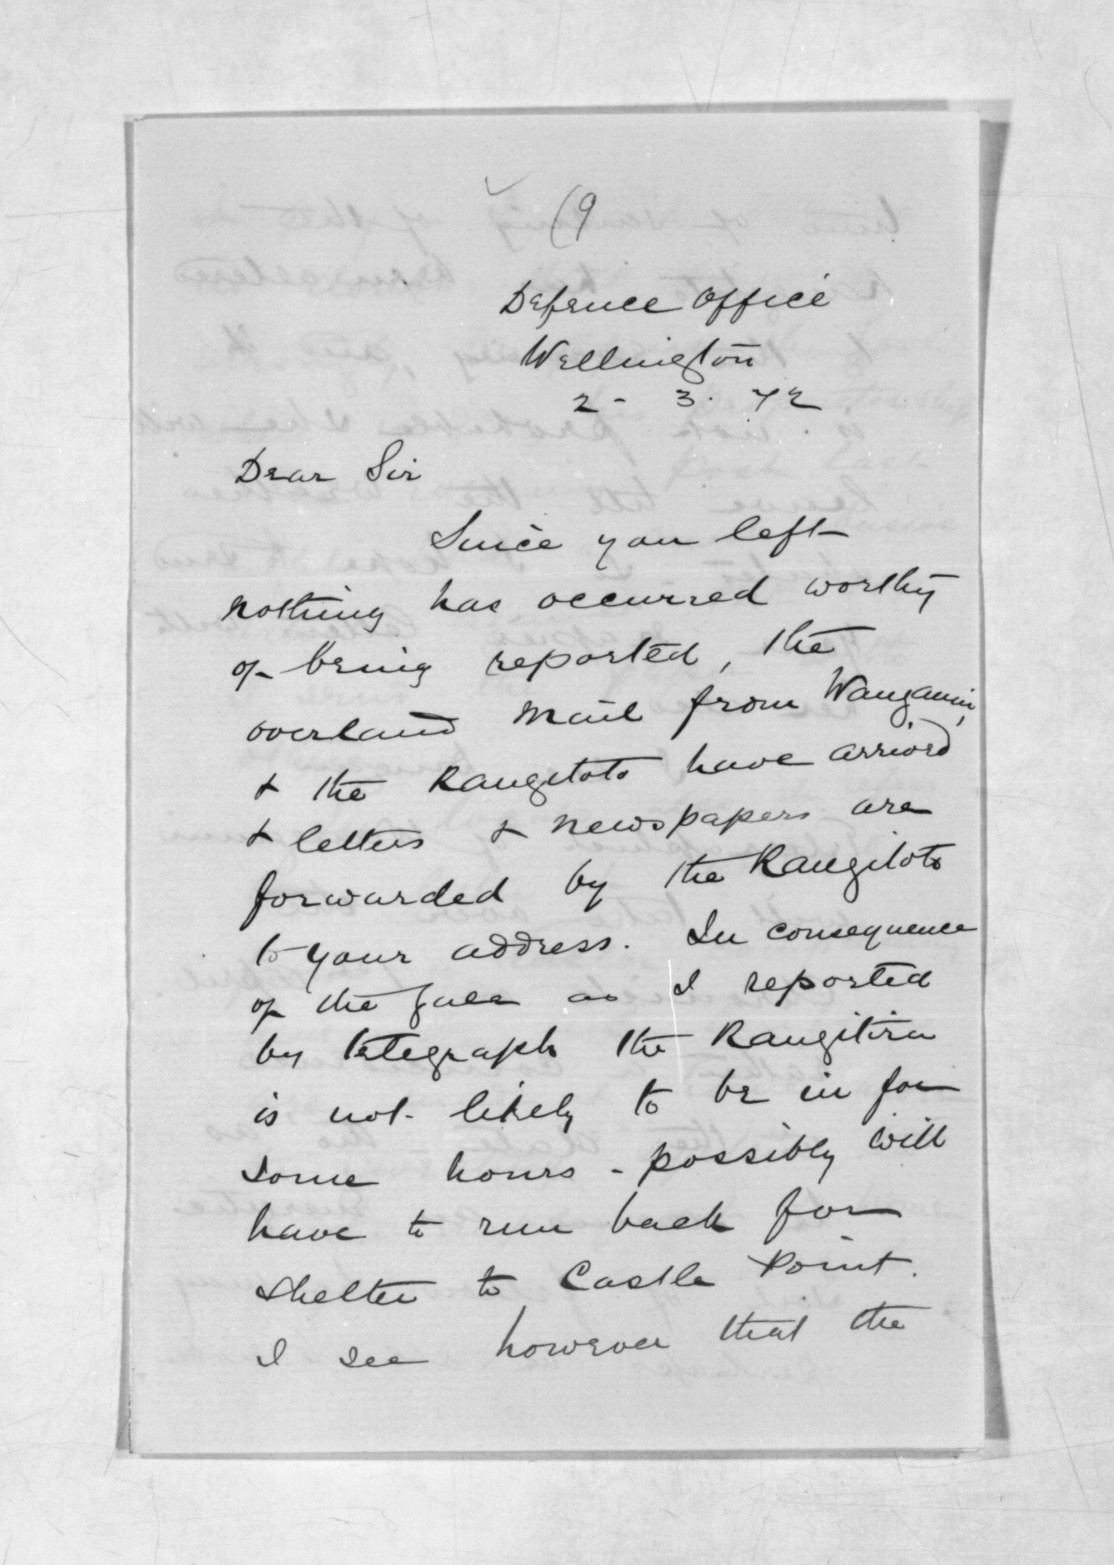 (9
Defence Office
Wellington
2 - 3. 72
Dear Sir
Since you left
nothing has occurred worthy
of being reported, the
overland mail from Wanganui,
& the Rangitoto have arrived
& letters & newspapers are
forwarded by the Rangitoto
to your address. In consequence
of the gale as I reported
by telegraph the Rangitira
is not likely to be in for
some hours - possibly will
have to run back for
shelter to Castle Point.
I see however that the